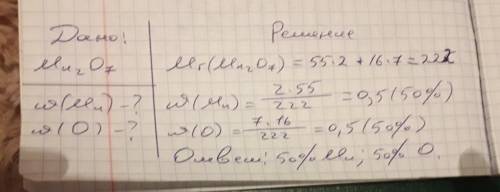 Дано:
Mn₂O₇
ω(Mn) - ?
ω(O) - ?
Решение
Mr(Mn₂O₇) = 55·2 + 16·7 = 222
ω(Mn) = 2·55/222 = 0,5 (50%)
ω(O) = 7·16/222 = 0,5 (50%)
Ответ: 50% Mn; 50% O.